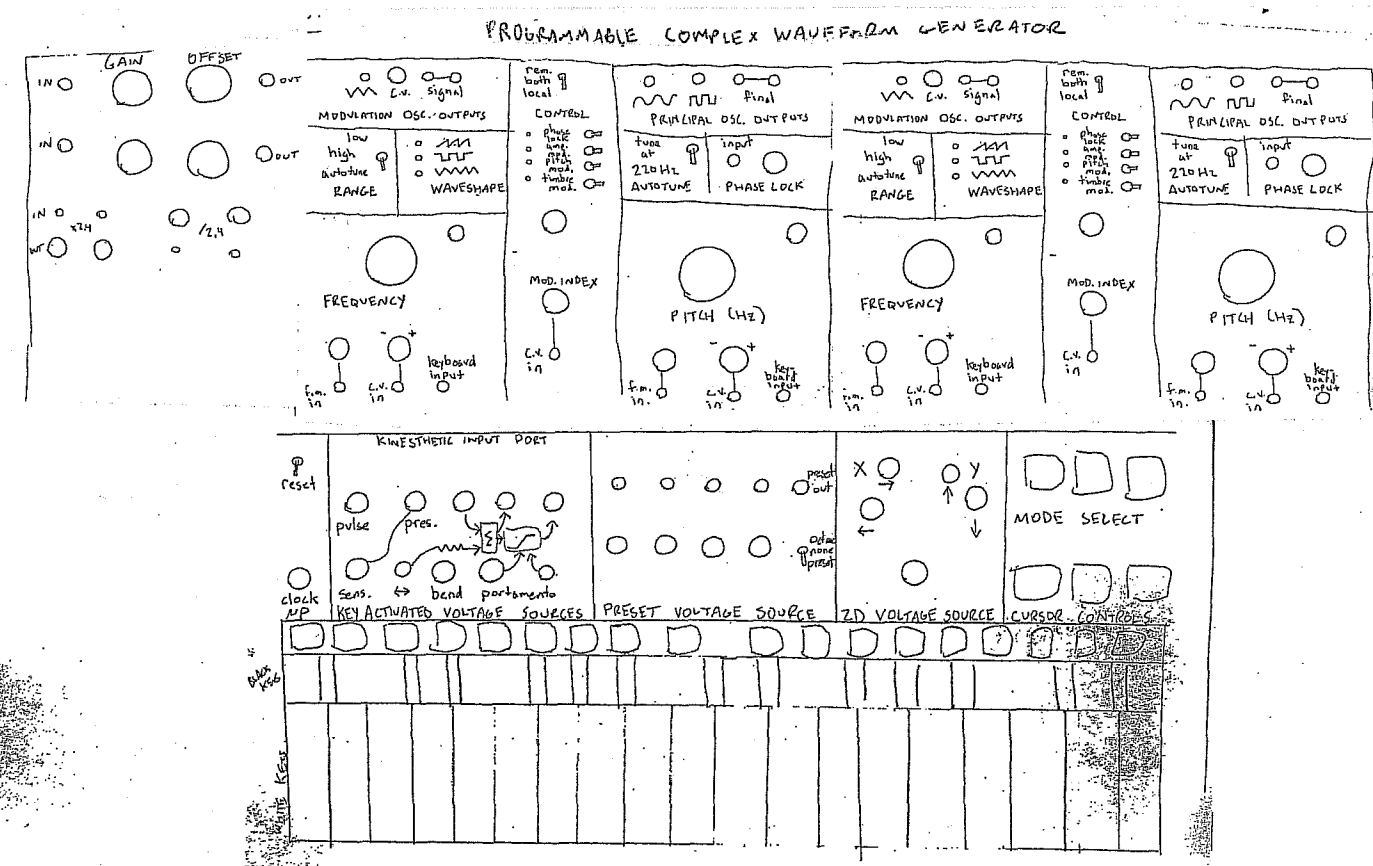 PROGRAMMABLE COMPLEX WAVEFORM GENERATOR
GAIN OFFSET
IN OUT
IN OUT
IN
x2.4 /2.4
OUT
C.V. signal
MODULATION OSC. OUTPUTS
low
high
autotune
RANGE
WAVESHAPE
FREQUENCY
- +
f.m. in
c.v. in
keyboard input
rem.
both
local
CONTROL
phase lock
amp. mod.
pitch mod.
timbre mod.
MOD. INDEX
C.V. in
final
PRINCIPAL OSC. OUTPUTS
tune at 220 Hz
AUTOTUNE
input
PHASE LOCK
PITCH (Hz)
- +
f.m. in.
c.v. in
keyboard input
C.V. signal
MODULATION OSC. OUTPUTS
low
high
autotune
RANGE
WAVESHAPE
FREQUENCY
- +
f.m. in
c.v. in
keyboard input
rem.
both
local
CONTROL
phase lock
amp. mod.
pitch mod.
timbre mod.
MOD. INDEX
C.V. in
final
PRINCIPAL OSC. OUTPUTS
tune at 220 Hz
AUTOTUNE
input
PHASE LOCK
PITCH (Hz)
- +
f.m. in.
c.v. in
key-board input
reset
clock
KINESTHETIC INPUT PORT
pulse pres.
Σ
sens. ↔ bend portamento
KEY ACTIVATED VOLTAGE SOURCES
preset out
none
preset
PRESET VOLTAGE SOURCE
X Y
→ ↑
← ↓
2D VOLTAGE SOURCE
MODE SELECT
CURSOR CONTROLS
KEYS
WHITE KEYS